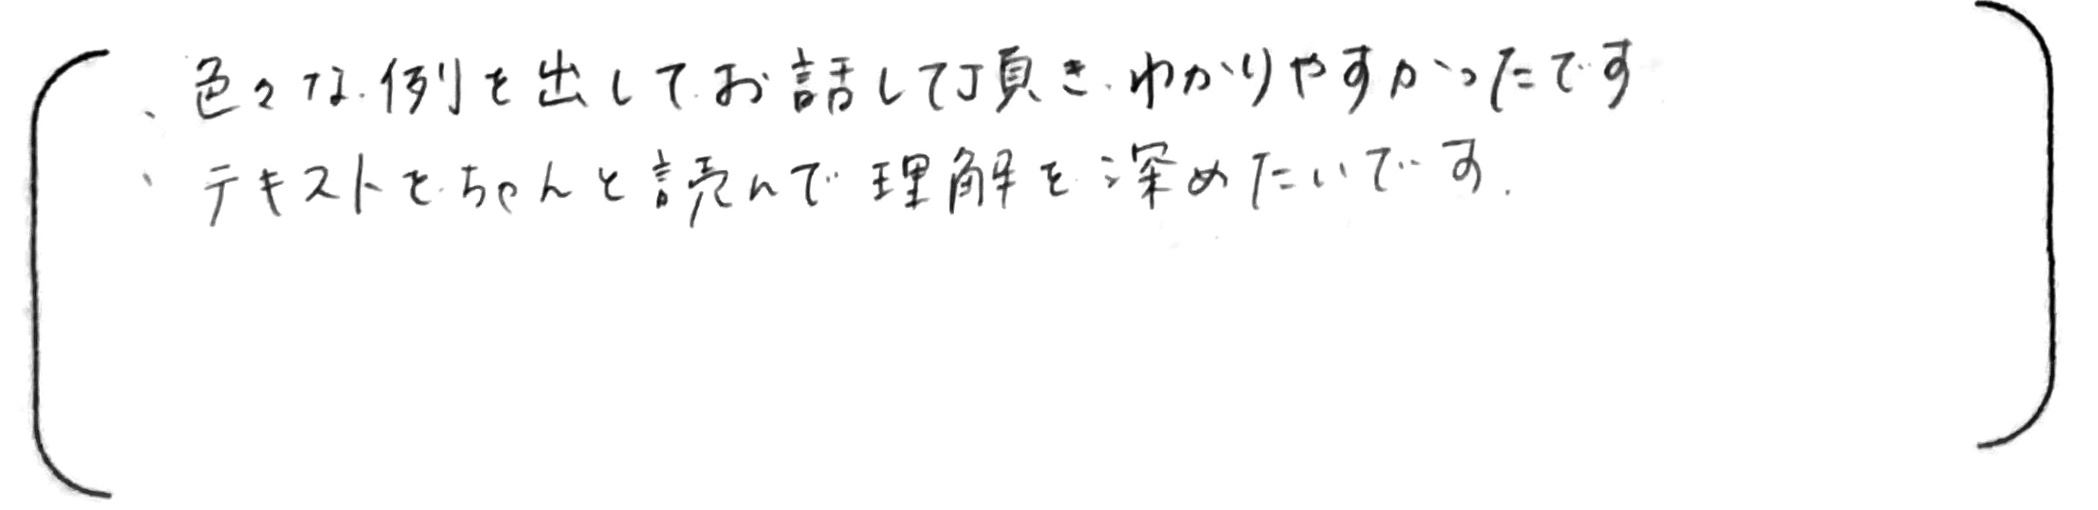 、色々な例を出してお話して頂き、わかりやすかったです
、テキストをちゃんと読んで理解を深めたいです.